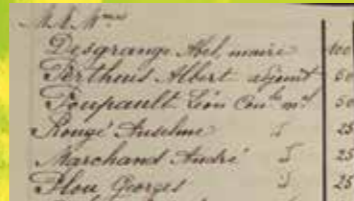 M.M. Mmes
Desgrange Abel, maire 100
Perthuis Albert adjoint 50
Poupault Léon Conler mal 50
Rougé Anselme 25
Marchand André 25
Plou Georges 25